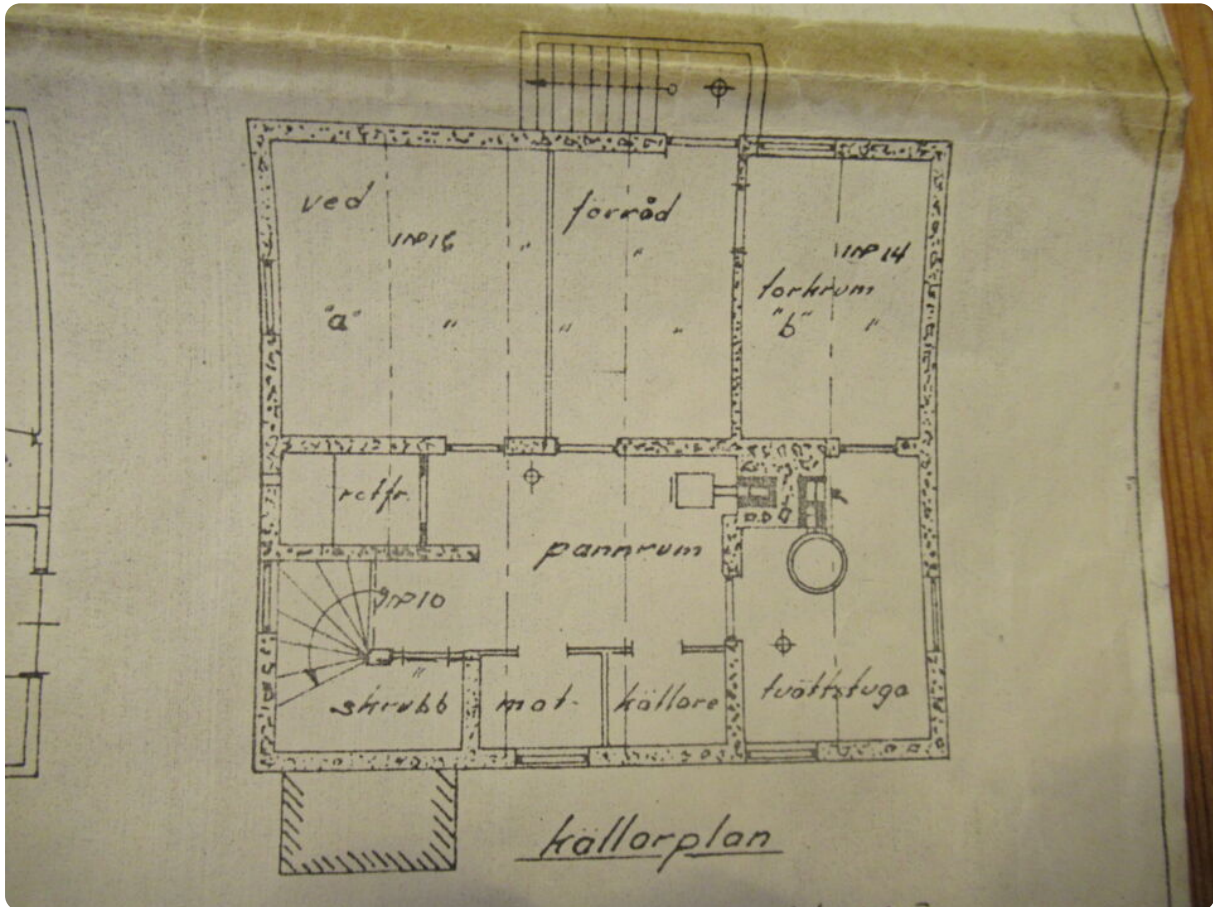 ved
förråd
INP 16
"
"
INP 14
torkrum
"a"
"
"
"
"b"
"
pannrum
INP 10
"
skrubb
mat-
källare
tvättstuga
källarplan